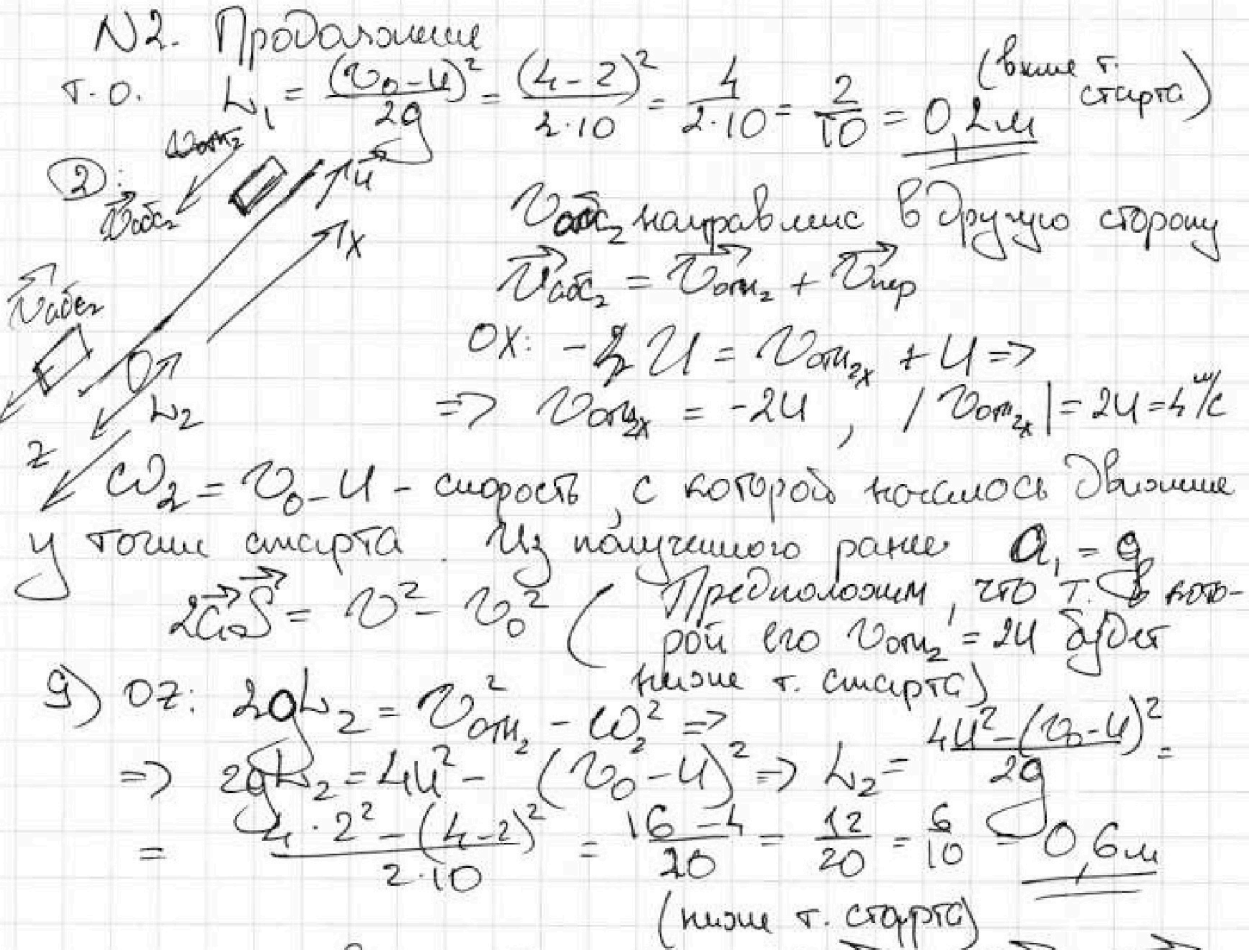 N2. Продолжение
т.о. L₁ = (v₀-u)²/2g = (4-2)²/2·10 = 4/2·10 = 2/10 = 0,2м (выше т. старта)
②: v⃗отн₂ u⃗
v⃗абс₂ X
v⃗абс₂ направлена в другую сторону
v⃗абс₂ = v⃗отн₂ + v⃗пер
v⃗абс₂
OX: -u = vотн₂ₓ + u =>
O L₂ Z
=> vотн₂ₓ = -2u, |vотн₂ₓ| = 2u = 4 м/с
ω₂ = v₀-u - скорость, с которой началось движение
у точки старта. Из полученного ранее a₁ = g
2a⃗S⃗ = v² - v₀² (Предположим, что т. в кото-
рой его vотн₂ = 2u будет
ниже т. старта)
g) OZ: 2gL₂ = v²отн₂ - ω₂² =>
=> 2gL₂ = 4u² - (v₀-u)² => L₂ = 4u²-(v₀-u)²/2g =
= 4·2²-(4-2)²/2·10 = 16-4/20 = 12/20 = 6/10 = 0,6м
(ниже т. старта)